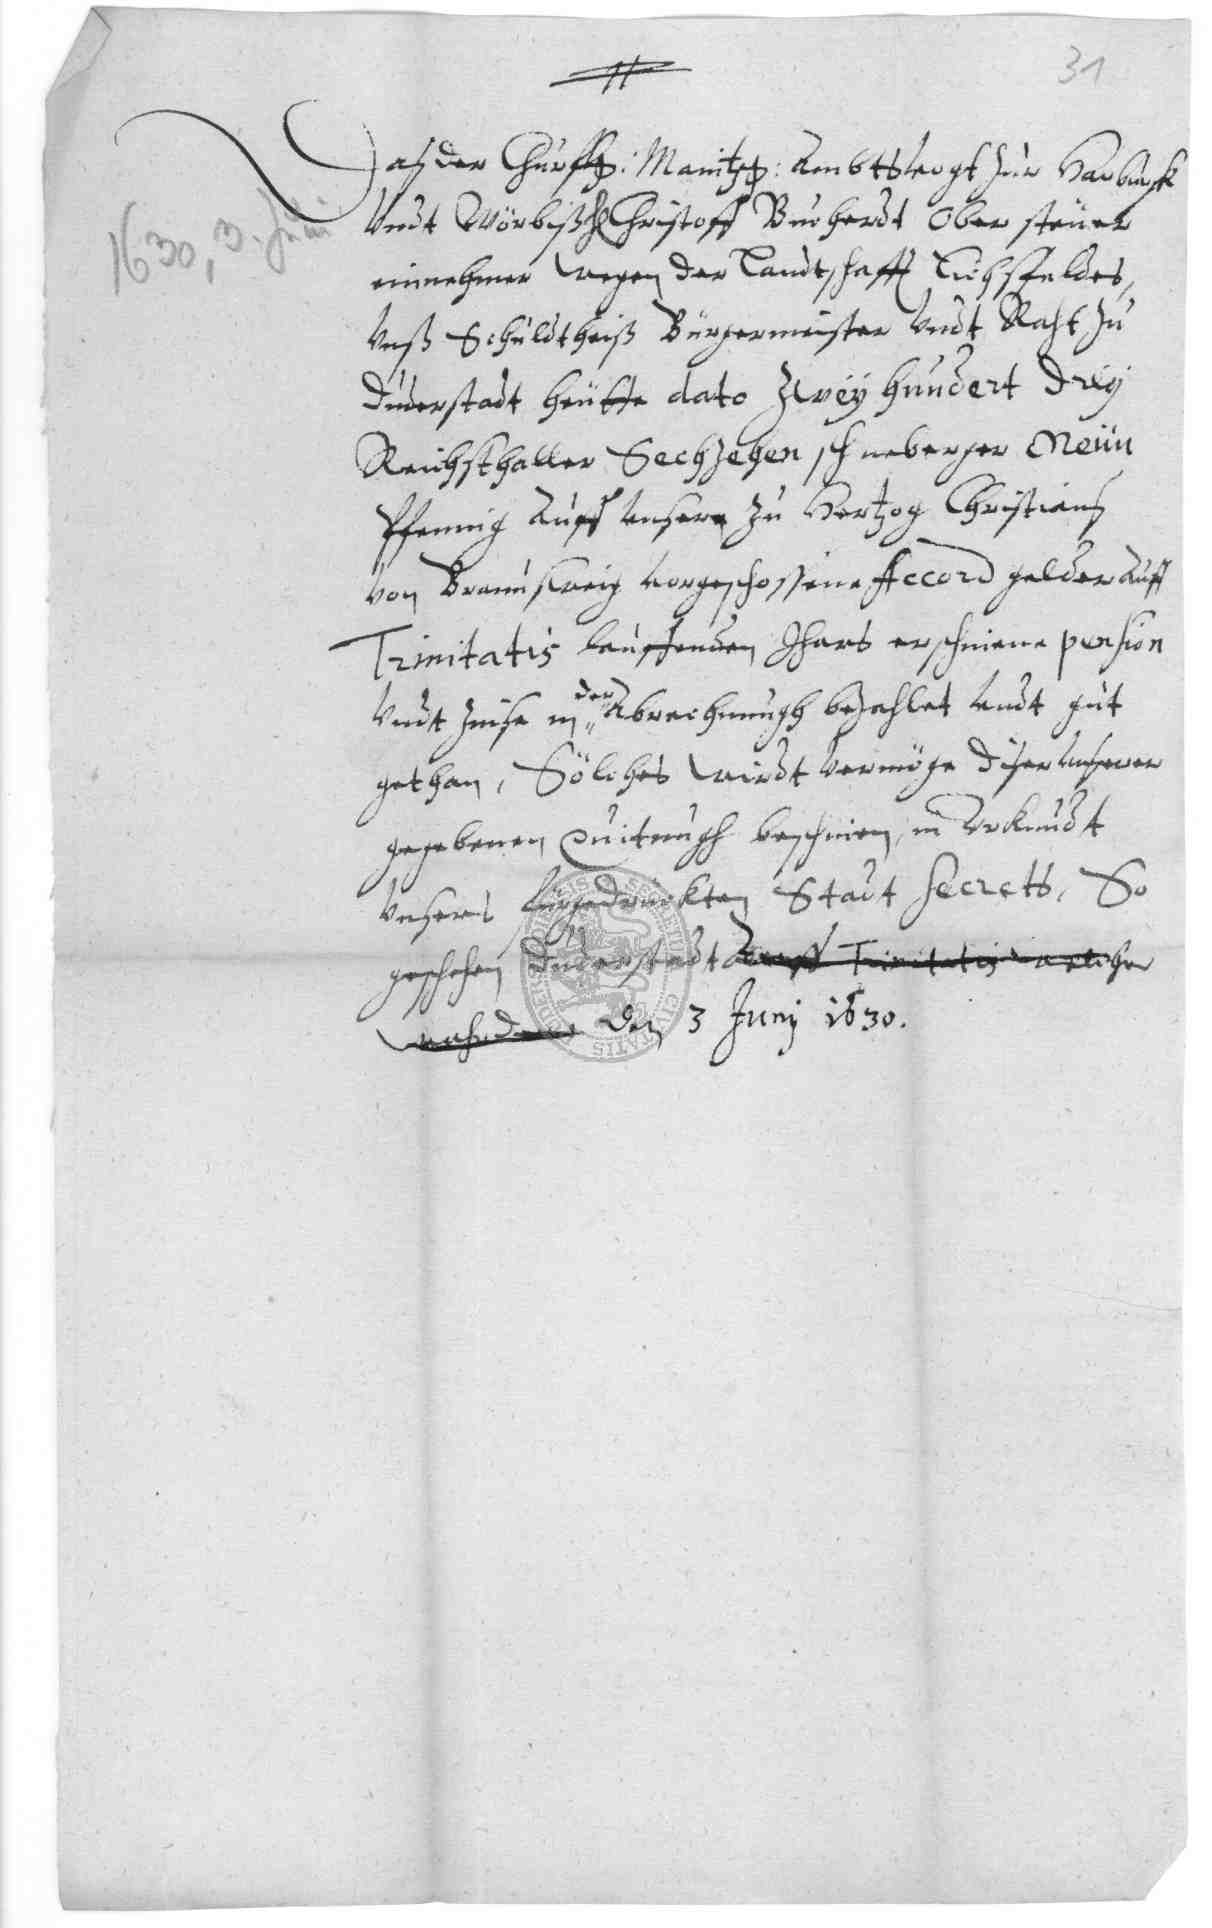 31
1630, 3. Juni
Daß der Churf: Maintz: Ambtsvogt zur Harburgk
Vndt Wörbiß Christoff Bucherdt Ober steüer
einnehmer wegen der Landtschafft Eichsfeldes,
Vnß Schuldtheiß Bürgermeister Vndt Raht zu
Duderstadt heütte dato Zweÿ hundert Dreÿ
Reichsthaller Sechzehen schneberger Neün
Pfennig Auff Vnsere zu Hertzog Christians
von Braunschweig vorgeschossene Accord gelder auff
Trinitatis lauffenden Jhars erschienene pension
Vndt Zinse in der Abrechnungh bezahlet vndt gut
gethan, Sölches wirdt vermöge diser vnserer
gegebenen Quitungh bescheinen, in Vrkundt
Vnsers fürgedrückten Stadt Secrets, So
geschehen Duderstadt Auff Trinitatis welcher
den 3 Junij 1630.
SECRETUM CIVITATIS